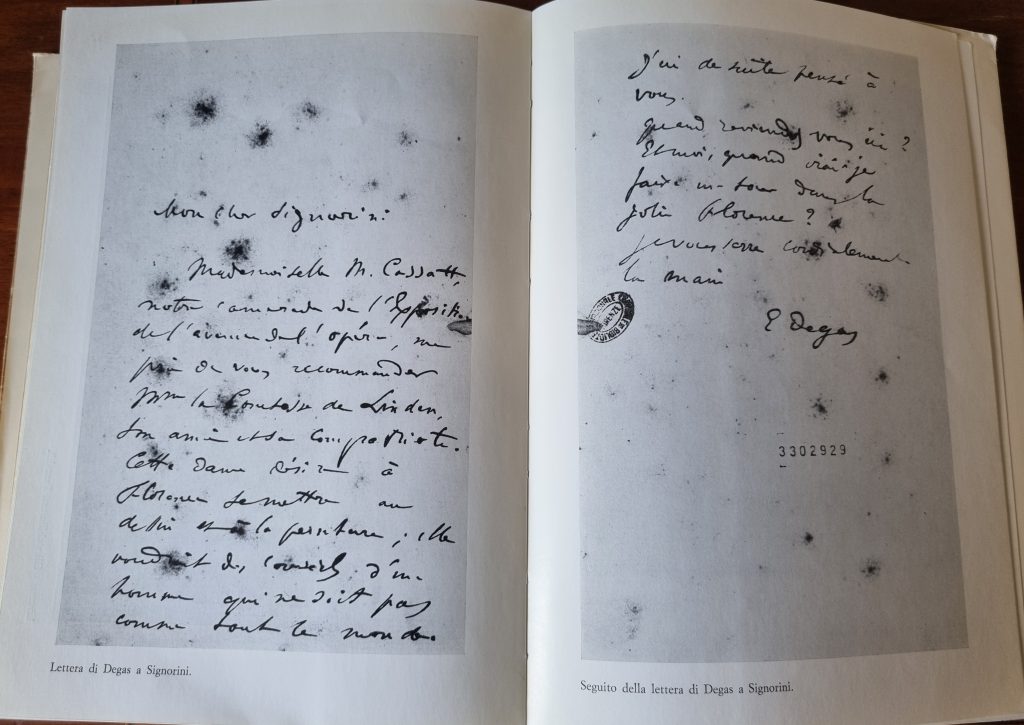 Mon cher Signorini
Mademoiselle M. Cassatt,
notre camarade de l'Exposition
de l'avenue de l'opéra, me
prie de vous recommander
Mme la Comtesse de Linden,
son amie et sa compatriote.
Cette dame désire à
Florence se mettre au
dessin et à la peinture ; elle
voudrait des conseils d'un
homme qui ne soit pas
comme tout le monde.
Lettera di Degas a Signorini.
J'ai de suite pensé à
vous.
quand reviendrez vous ici ?
Et moi, quand irai-je
faire un tour dans la
jolie Florence ?
je vous serre cordialement
la main
E Degas
3302929
Seguito della lettera di Degas a Signorini.